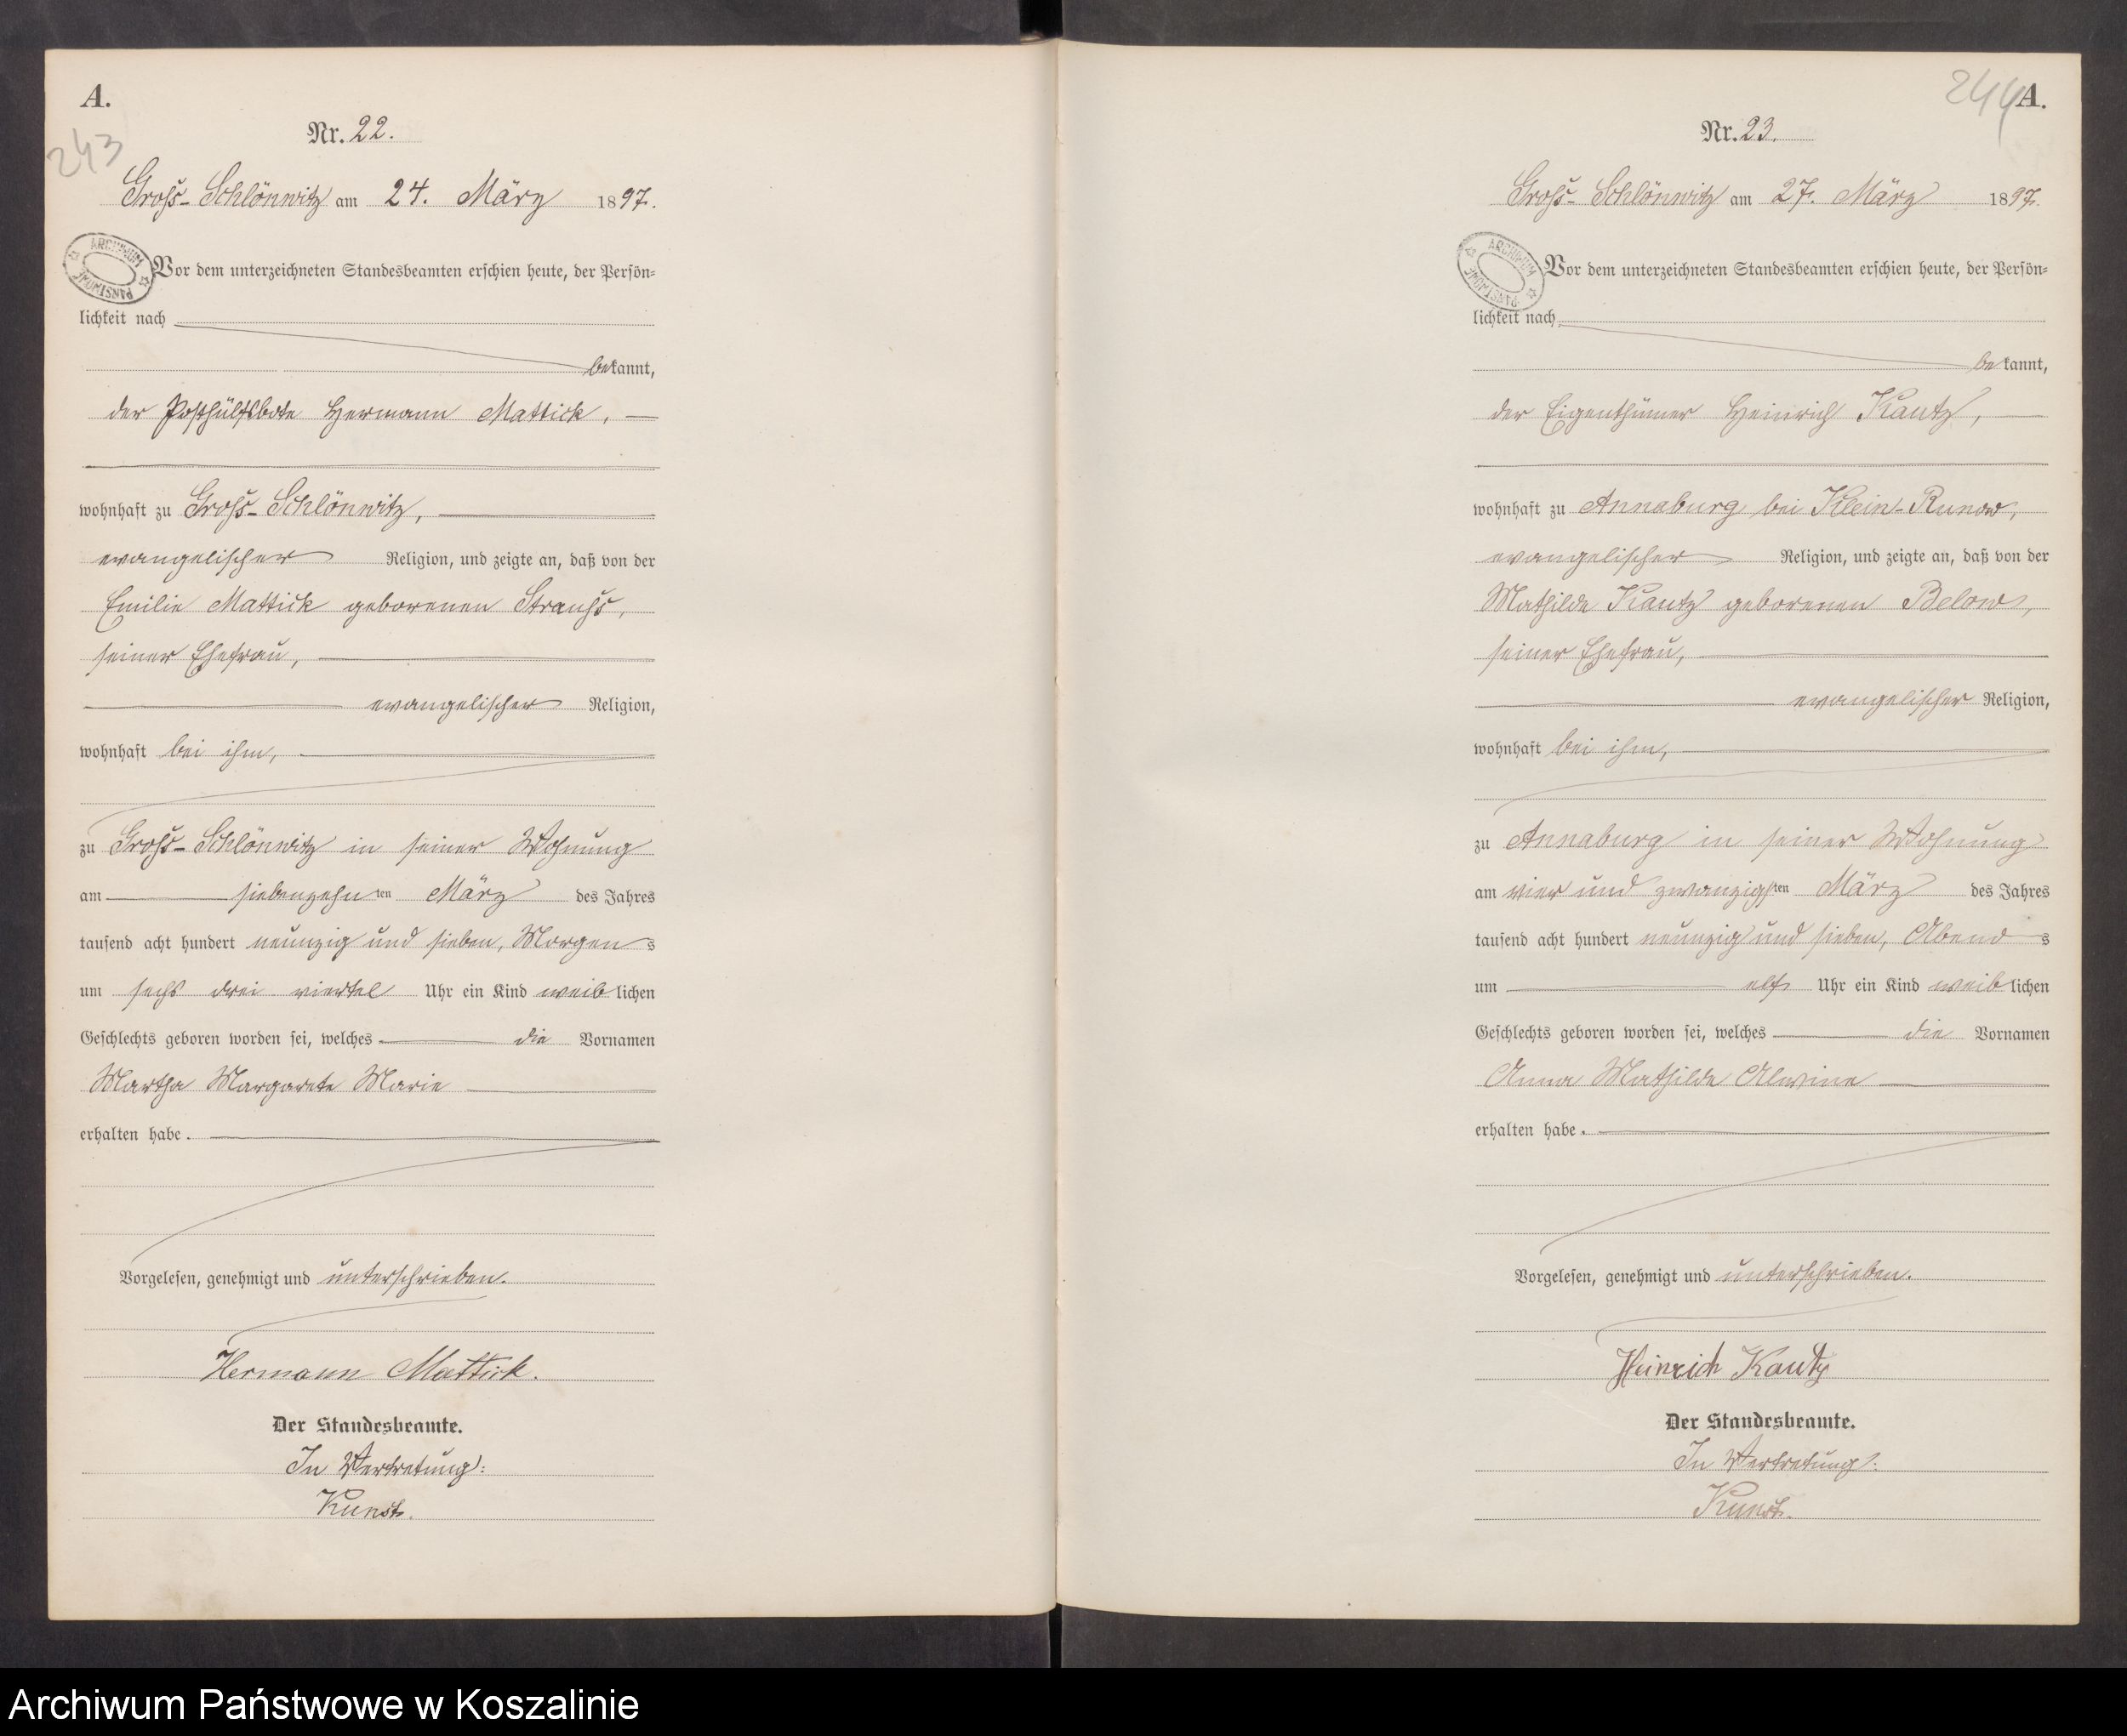 A.
243
Nr. 22.
Groß-Schlönwitz am 24. März 1897.
ARCHIWUM PAŃSTWOWE
Vor dem unterzeichneten Standesbeamten erschien heute, der Persön=
lichkeit nach
bekannt,
der Posthülfsbote Hermann Mattick,
wohnhaft zu Groß-Schlönwitz,
evangelischer Religion, und zeigte an, daß von der
Emilie Mattick geborenen Strauß,
seiner Ehefrau,
evangelischer Religion,
wohnhaft bei ihm,
zu Groß-Schlönwitz in seiner Wohnung
am siebenzehnten März des Jahres
tausend acht hundert neunzig und sieben, Morgens
um sechs drei viertel Uhr ein Kind weiblichen
Geschlechts geboren worden sei, welches die Vornamen
Martha Margarete Marie
erhalten habe.
Vorgelesen, genehmigt und unterschrieben.
Hermann Mattick.
Der Standesbeamte.
In Vertretung:
Kunst.
244
A.
Nr. 23.
Groß-Schlönwitz am 27. März 1897.
ARCHIWUM PAŃSTWOWE
Vor dem unterzeichneten Standesbeamten erschien heute, der Persön=
lichkeit nach
bekannt,
der Eigenthümer Heinrich Kautz,
wohnhaft zu Annaburg bei Klein-Runow,
evangelischer Religion, und zeigte an, daß von der
Mathilde Kautz geborenen Below,
seiner Ehefrau,
evangelischer Religion,
wohnhaft bei ihm,
zu Annaburg in seiner Wohnung
am vier und zwanzigsten März des Jahres
tausend acht hundert neunzig und sieben, Abends
um elf Uhr ein Kind weiblichen
Geschlechts geboren worden sei, welches die Vornamen
Anna Mathilde Alwine
erhalten habe.
Vorgelesen, genehmigt und unterschrieben.
Heinrich Kautz
Der Standesbeamte.
In Vertretung:
Kunst.
Archiwum Państwowe w Koszalinie